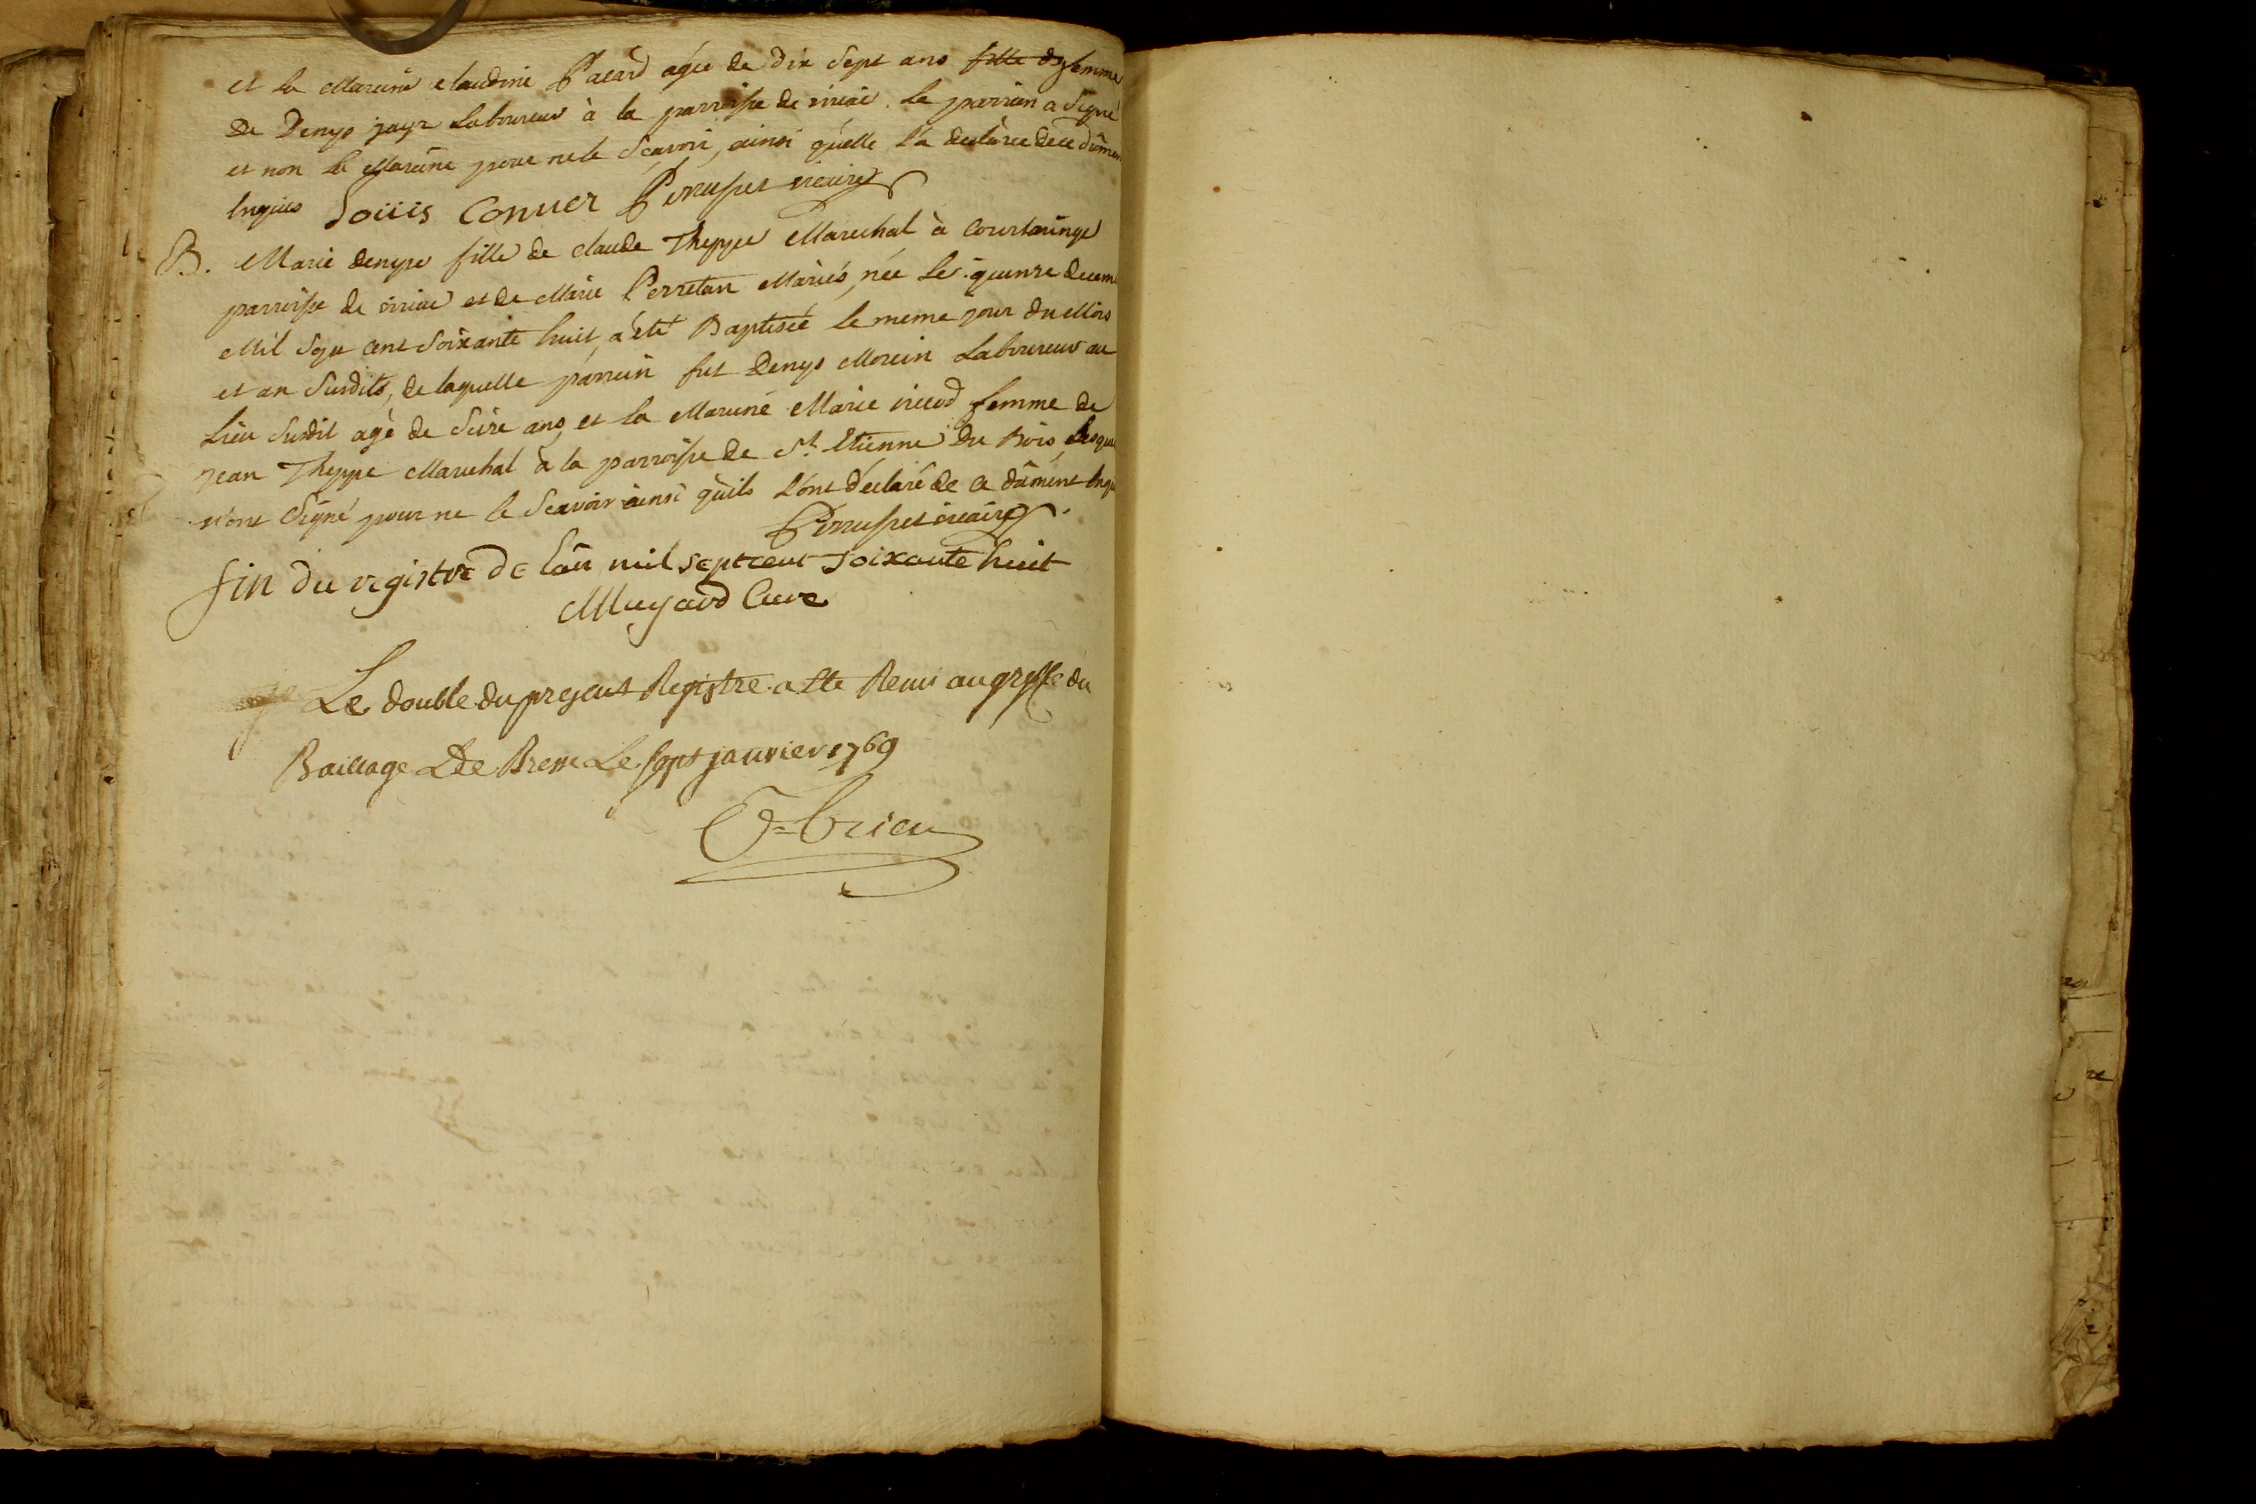 et la Mareine claudine Pacard agée de dix Sept ans fille de femme
de Denys jayr Laboureur à la parroisse de viriac. Le parrien a Signé
et non la Mareine pour ne le Scavoir, ainsi qu'elle l'a declarée de ce dûment
Enquis Loüis Convert Perrusset vicaire
B. Marie denyse fille de claude Theppe Marechal à Courtauinge
parroisse de viriac et de Marie Perretan Mariés, née le quinze decem
Mil Sept cent Soixante huit, a été Baptisée le meme jour du Mois
et an Susdits, de laquelle parrein fut Denys Morein Laboureur au
Lieu Susdit agé de Seize ans, et la Mareine Marie vicard femme de
jean Theppe Marechal à la parroisse de St. Etienne Du Bois, Lesque
n'ont Signé pour ne le Scavoir ainsi qu'ils l'ont déclaré de ce dûment Enqu
Perrusset vicaire
fin du registre de l'an mil Sept cent Soixante huit
Muyard Curé
Le double du present Registre a Ete Remi au greffe du
Baillage De Bresse Le sept janvier 1769